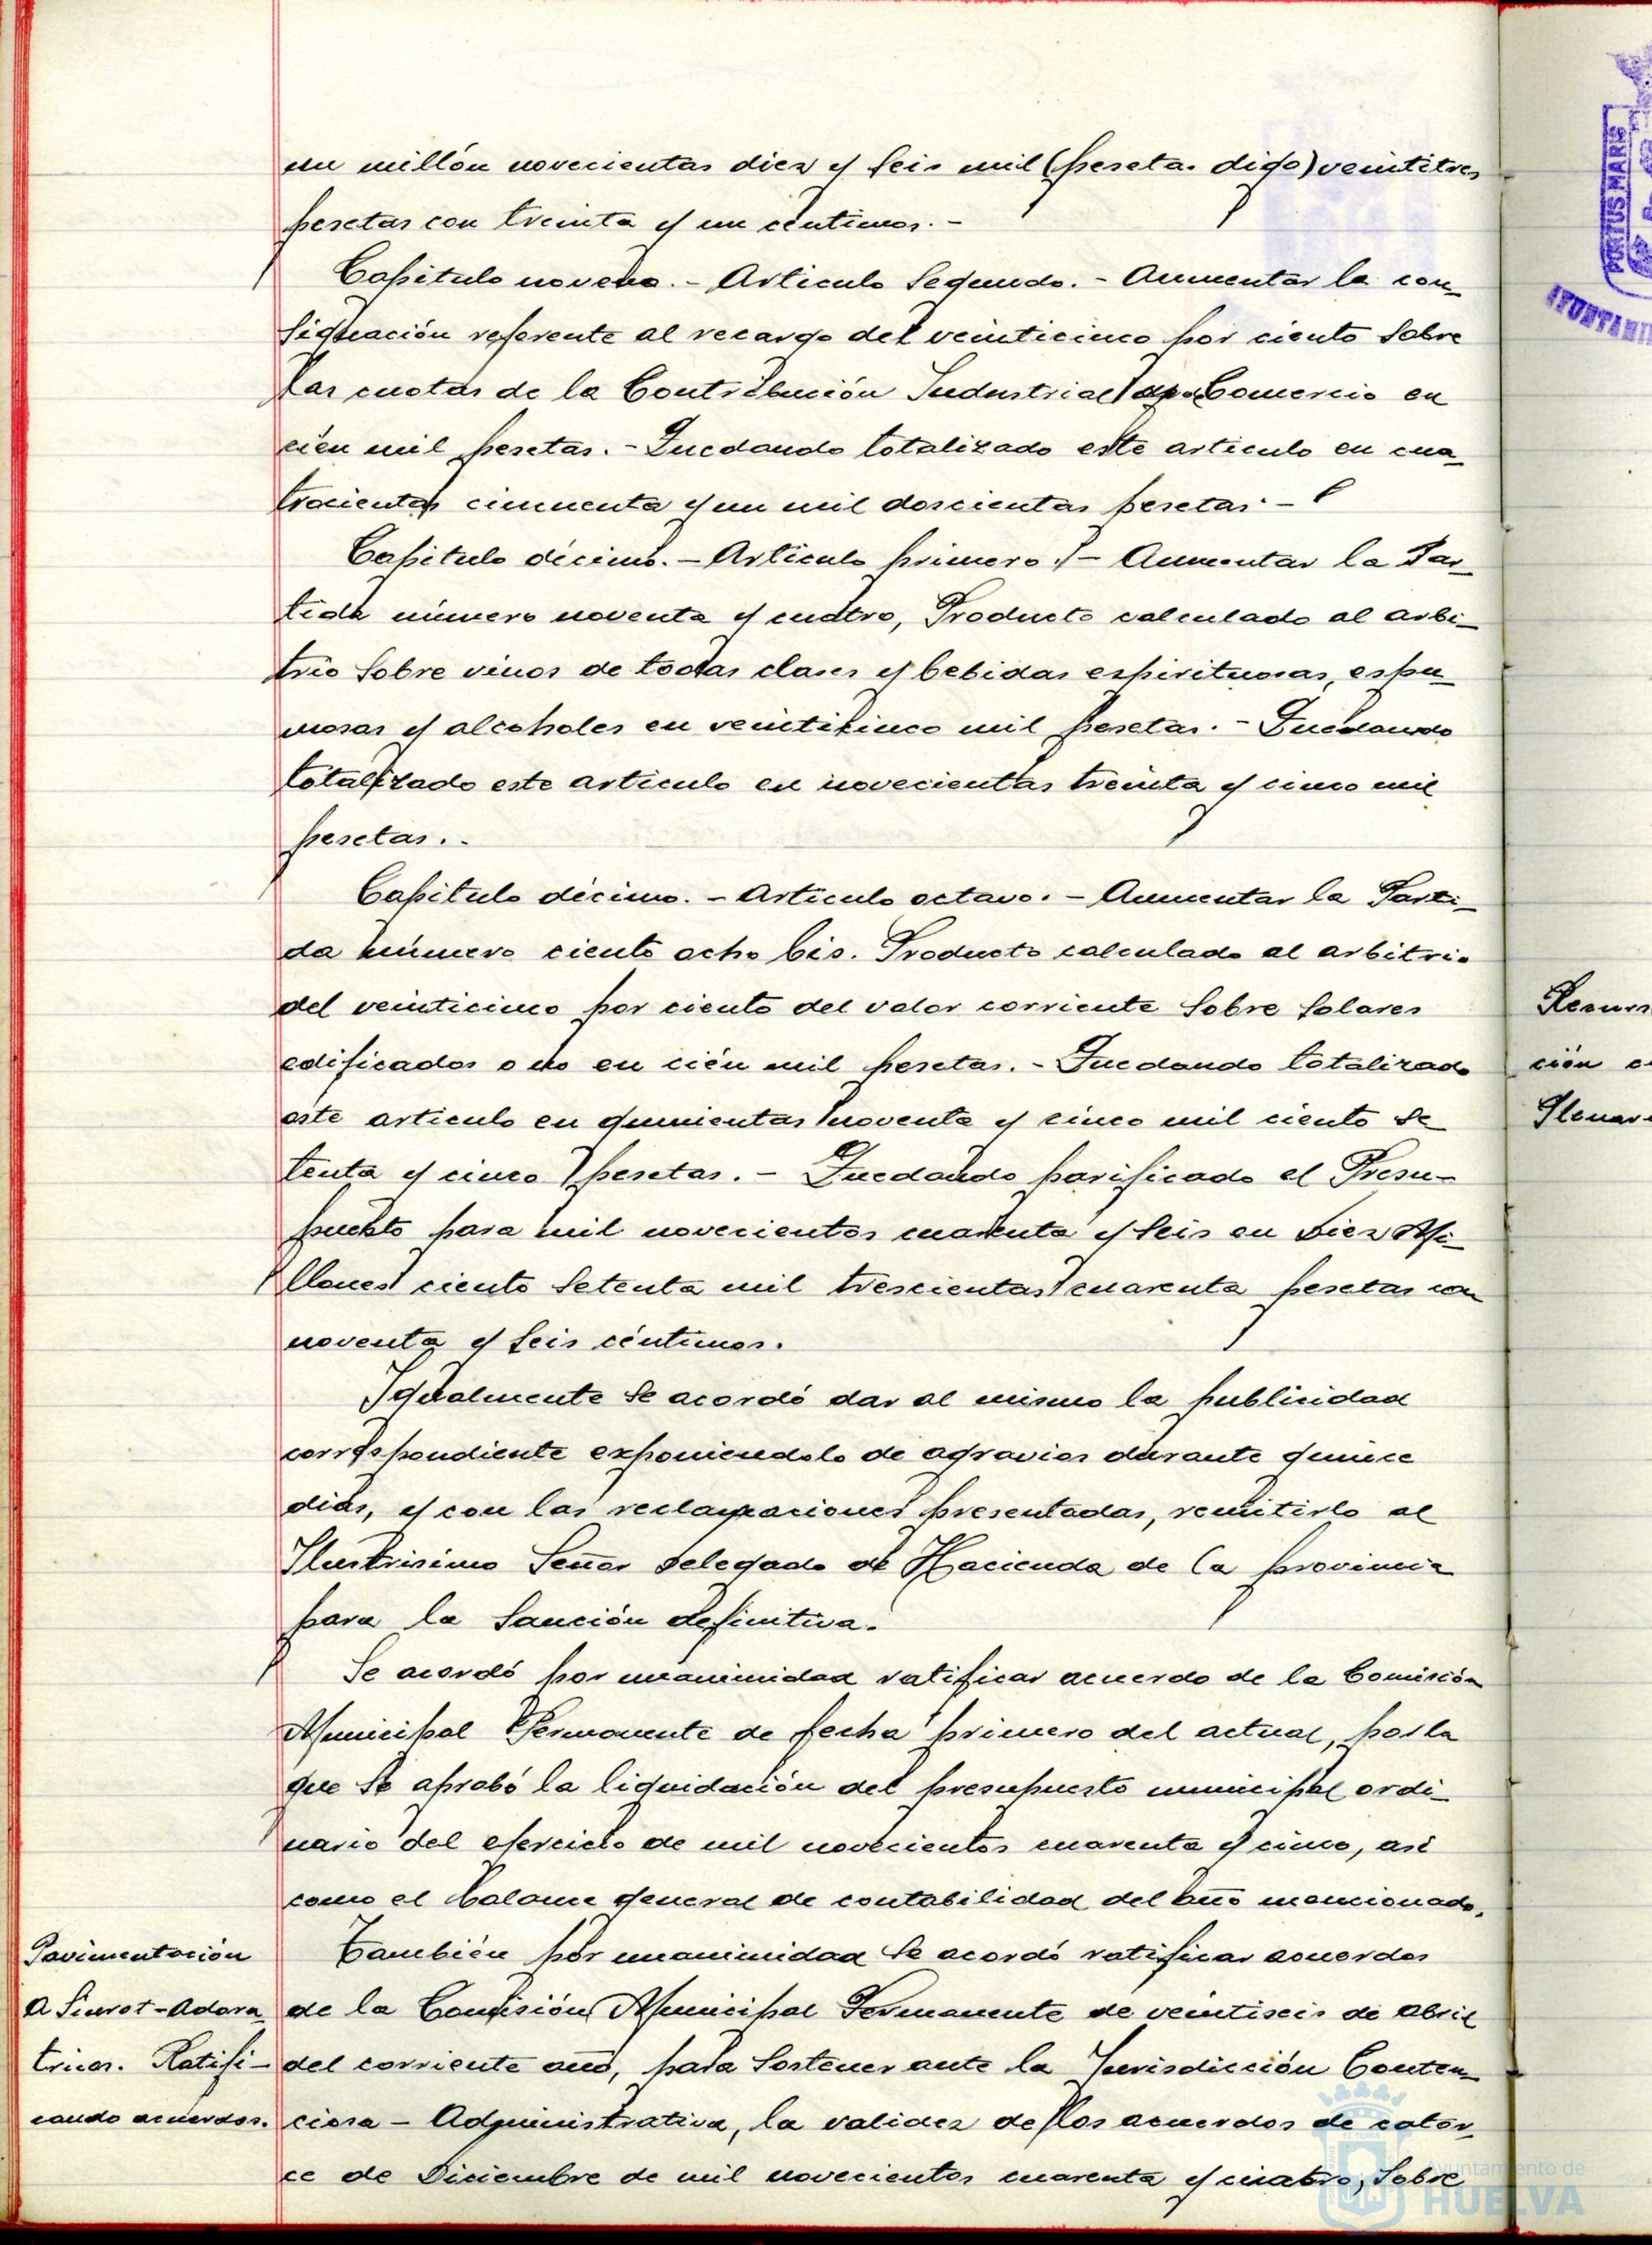 un millón novecientas diez y seis mil (pesetas digo) veintitres
pesetas con treinta y un céntimos.-
Capitulo noveno.- Articulo Segundo.- Aumentar la con_
signación referente al recargo del veinticinco por ciento sobre
las cuotas de la Contribución Industrial Comercio en
cién mil pesetas.- Quedando totalizado este articulo en cua_
trocientas cincuenta y un mil doscientas pesetas.-
Capitulo décimo.- Articulo primero.- Aumentar la Par_
tida número noventa y cuatro, Producto calculado al arbi_
trio sobre vinos de todas clases y bebidas espirituosas, espu_
mosas y alcoholes en veinticinco mil pesetas.- Quedando
totalizado este articulo en novecientas treinta y cinco mil
pesetas..
Capitulo décimo.- Articulo octavo.- Aumentar la Parti_
da número ciento ocho bis. Producto calculado al arbitrio
del veinticinco por ciento del valor corriente sobre solares
edificados o no en cién mil pesetas.- Quedando totalizado
este articulo en quinientas noventa y cinco mil ciento se_
tenta y cinco pesetas.- Quedando parificado el Presu-
puesto para mil novecientos cuarenta y seis en Diez Mi_
llones ciento setenta mil trescientas cuarenta pesetas con
noventa y seis céntimos.
Igualmente se acordó dar al mismo la publicidad
correspondiente exponiendolo de agravios durante quince
dias, y con las reclamaciones presentadas, remitirlo al
Ilustrisimo Señor Delegado de Hacienda de la provincia
para la sanción definitiva.
Se acordó por unanimidad ratificar acuerdo de la Comisión
Municipal Permanente de fecha primero del actual, por la
que se aprobó la liquidación del presupuesto municipal ordi_
nario del ejercicio de mil novecientos cuarenta y cinco, asi
como el balance general de contabilidad del año mencionado.
Pavimentación
A Siurot-Adora_
trices. Ratifi-
cando acuerdos.
Tambièn por unanimidad se acordó ratificar acuerdos
de la Comisión Municipal Permanente de veintiseis de Abril
del corriente año, para sostener ante la Jurisdicción Conten_
ciosa - Administrativa, la validez de los acuerdos de cator_
ce de Diciembre de mil novecientos cuarenta y cuatro, sobre
ción
PORTUS MARIS
Ayuntamiento de
HUELVA